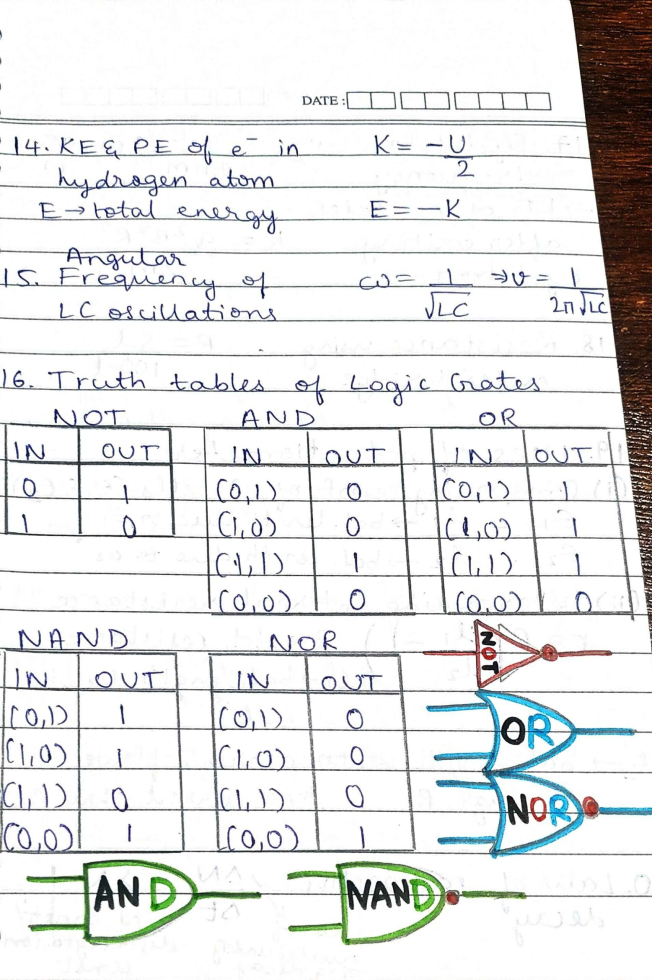 DATE :
14. KE & PE of e⁻ in K = -U/2
hydrogen atom
E → total energy E = -K
Angular
15. Frequency of ω = 1/√LC ⇒ υ = 1/2π√LC
LC oscillations
16. Truth tables of Logic Gates
NOT AND OR
IN OUT IN OUT IN OUT
0 1 (0,1) 0 (0,1) 1
1 0 (1,0) 0 (1,0) 1
(1,1) 1 (1,1) 1
(0,0) 0 (0,0) 0
NAND NOR
IN OUT IN OUT
(0,1) 1 (0,1) 0
(1,0) 1 (1,0) 0
(1,1) 0 (1,1) 0
(0,0) 1 (0,0) 1
NOT
OR
NOR
AND NAND